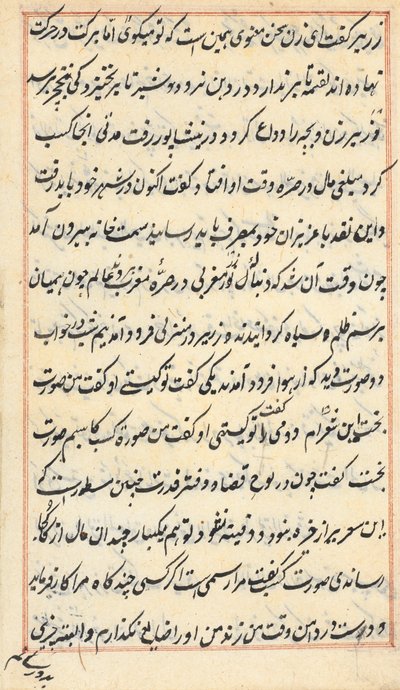 زبیر گفت ای زن سخن معنوی همین است که تو میکوئی امّا برکت در حرکت
نهاده اند لقمه تا بر ندارد در دهن نرود و شیر تا بر نخیزد کی نخچیر رسد
زبیر زن و بچه را وداع کرد و در نیشابور رفت مدتی انجا کسب
کرد مبلغی مال در صرّه وقت او افتاد گفت اکنون در شهر خود باید رفت
و این نقد با عزیزان خود بمصرف باید رسانید سمت خانه بیرون آمد
چون وقت آن شد که دنبال زر مغربی در صرّه مغرب و عالم چون همیان
بر سنم ظلم و سیاه کردانیدند و زبیر در منزلی فرود آمد نیم شب در خواب
دو صورت دید که از هوا فرود آمدند یکی گفت تو کیستی او گفت من صورت
بخت این دومی را گفت تو کیستی او گفت من صورة کسب کاسبم صورت
بخت گفت چون در لوح قضا و دفتر قدرت چنین مسطورست که
این زبیر از خیره بنود و دفینه نقود تو هم یکبار چندان مال از کجا
رساندی صورت کسب گفت مرا رسمی است اگر کسی چند کاه مرا کار فرماید
و دست در دامن وقت من زند من او را ضایع نکذارم و البته چیزی
بدو رسانم